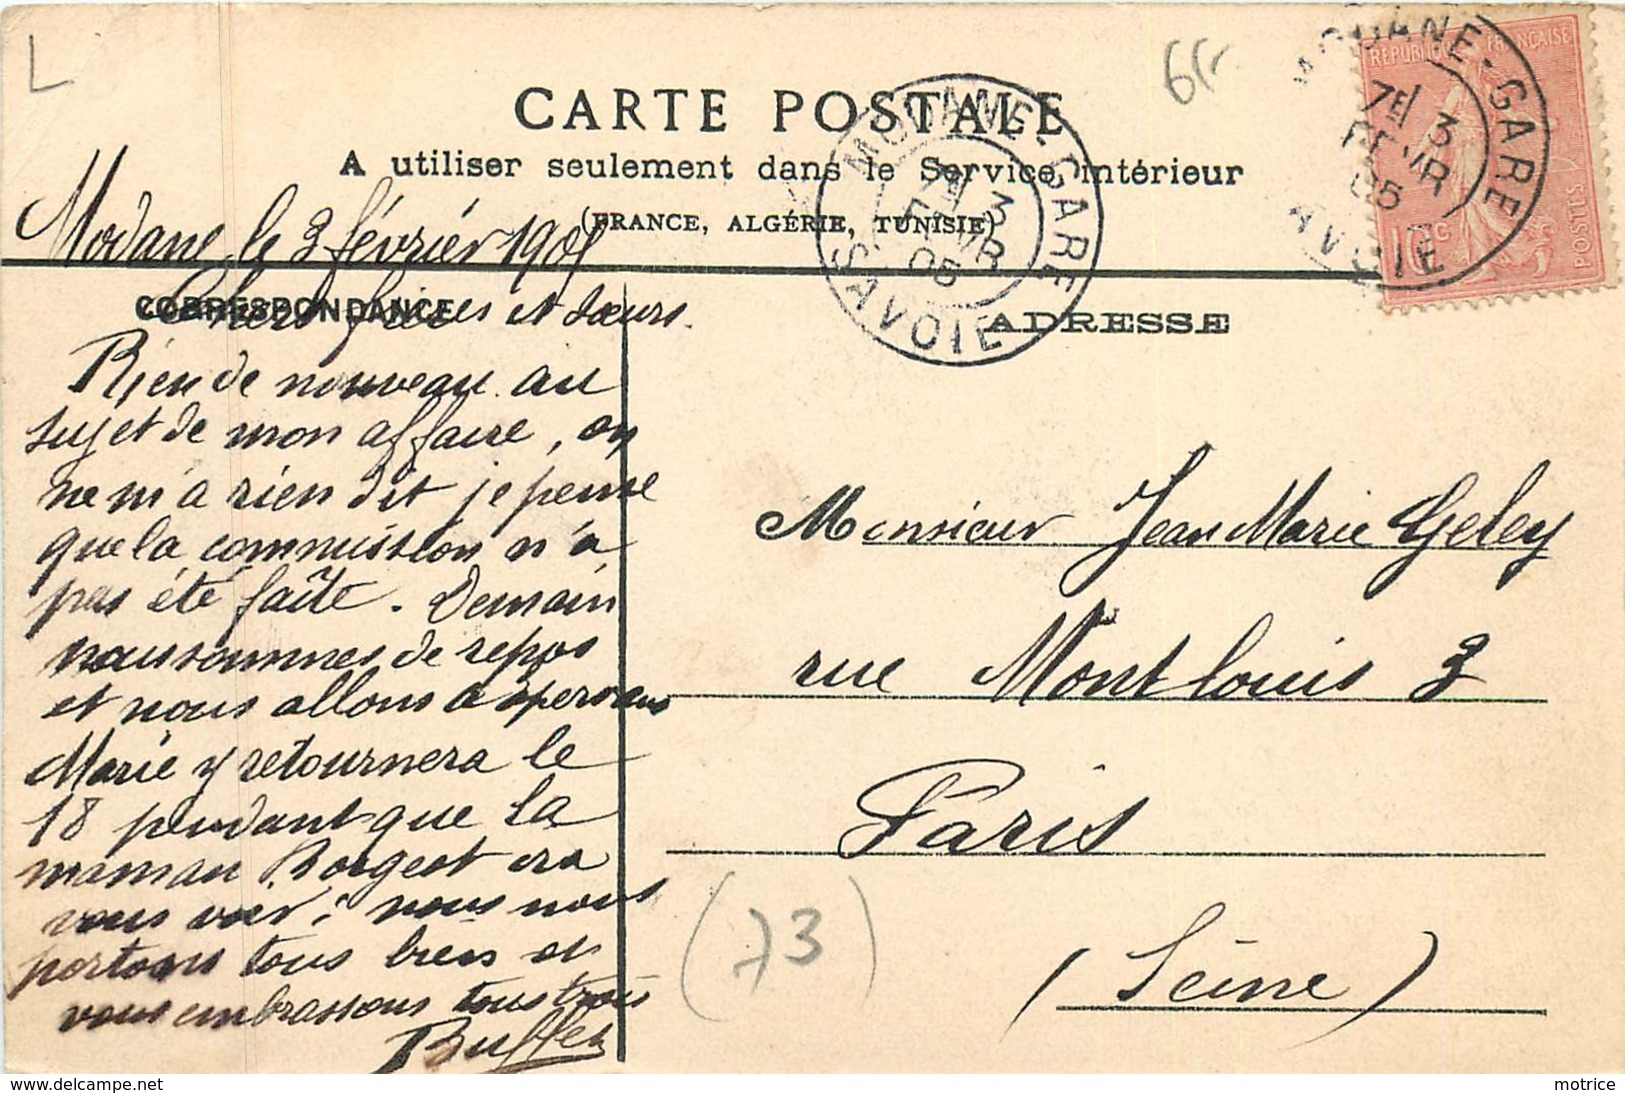 L
6f
CARTE POSTALE
A utiliser seulement dans le Service intérieur
(FRANCE, ALGÉRIE, TUNISIE)
MODANE-GARE
7E 3
FEVR
05
SAVOIE
MODANE-GARE
7E 3
FEVR
05
SAVOIE
REPUBLIQUE FRANÇAISE
POSTES
10c
Modane le 3 février 1905
CORRESPONDANCE
Chers frères et sœurs.
Rien de nouveau au
sujet de mon affaire, on
ne m'a rien dit je pense
que la commission n'a
pas été faîte. Demain
nous sommes de repos
et nous allons a
Marie y retournera le
18 pendant que la
maman Borgeot ira
vous voir; nous nous
portons tous bien et
vous embrassons tous trois
Buffet
ADRESSE
Monsieur Jean Marie Geley
rue Mont louis 3
Paris
(Seine)
(73)
delcampe.net
motrice